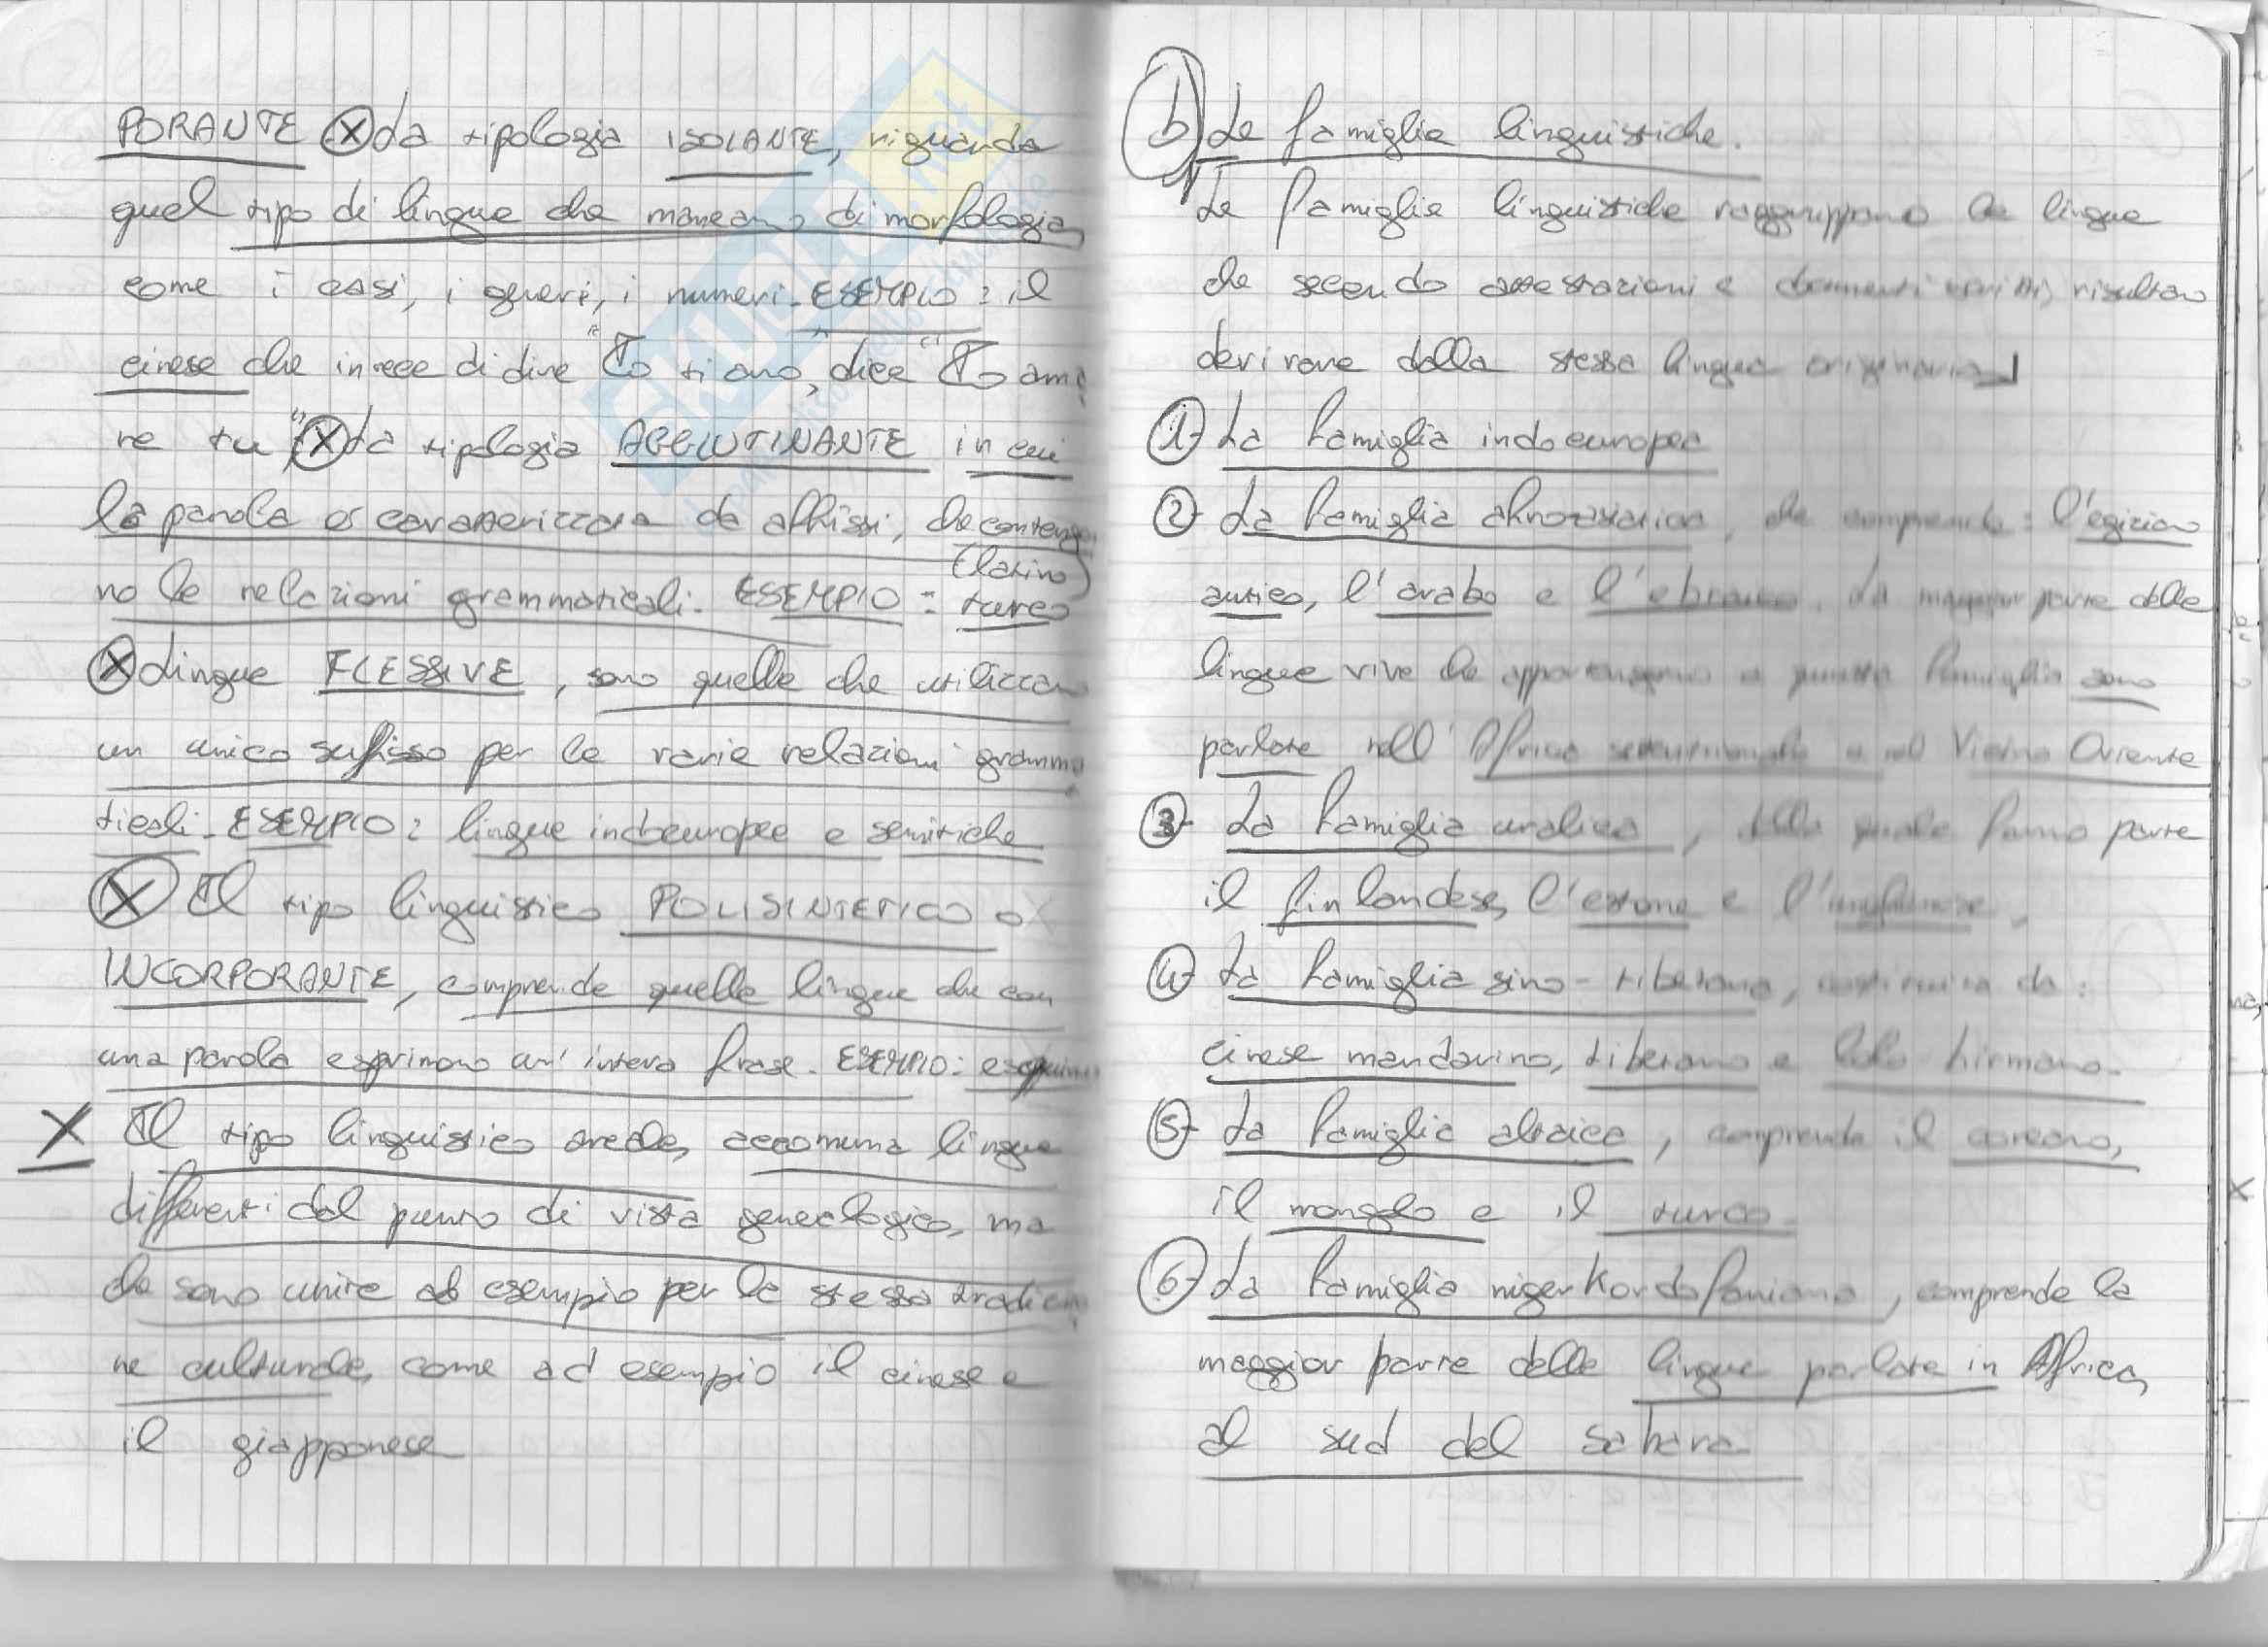 PORANTE ⓧ La tipologia ISOLANTE, riguarda
quel tipo di lingue che mancano di morfologia,
come i casi, i generi, i numeri. ESEMPIO: il
cinese che invece di dire "Io ti amo", dice "Io ama
re tu" ⓧ La tipologia AGGLUTINANTE in cui
la parola è caratterizzata da affissi, che contengo
no le relazioni grammaticali. ESEMPIO: turco
(latino)
ⓧ Lingue FLESSIVE, sono quelle che utilizzano
un unico suffisso per le varie relazioni gramma
ticali. ESEMPIO: lingue indoeuropee e semitiche
ⓧ Il tipo linguistico POLISINTETICO o
INCORPORANTE, comprende quelle lingue che con
una parola esprimono un'intera frase. ESEMPIO:
X Il tipo linguistico areale, accomuna lingue
differenti dal punto di vista genealogico, ma
che sono unite ad esempio per la stessa tradizio
ne culturale, come ad esempio il cinese e
il giapponese
b) Le famiglie linguistiche.
Le famiglie linguistiche raggruppano le lingue
che secondo attestazioni e documenti scritti, risultano
derivare dalla stessa lingua originaria
1- La famiglia indoeuropea
2- La famiglia afroasiatica, che comprende: l'egiziano
antico, l'arabo e l'ebraico. La maggior parte delle
lingue vive che appartengono a questa famiglia sono
parlate nell'Africa settentrionale e nel Vicino Oriente
3- La famiglia uralica, della quale fanno parte
il finlandese, l'estone e l'ungherese,
4- La famiglia sino-tibetana, costituita da:
cinese mandarino, tibetano e lolo birmano.
5- La famiglia altaica, comprende il coreano,
il mongolo e il turco.
6- La famiglia niger Kordofaniana, comprende la
maggior parte delle lingue parlate in Africa,
al sud del Sahara
SKUOLA.net